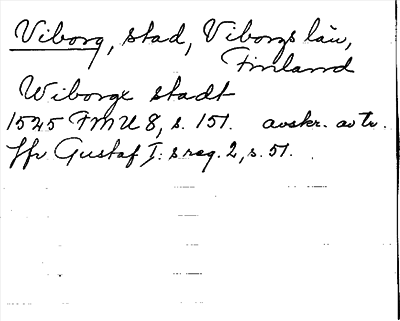 Viborg, stad, Viborgs län,
Finland
Wiborgx stadt
1545 FMU 8, s. 151. avskr. av tr.
ffr Gustaf I:s reg. 2, s. 51.